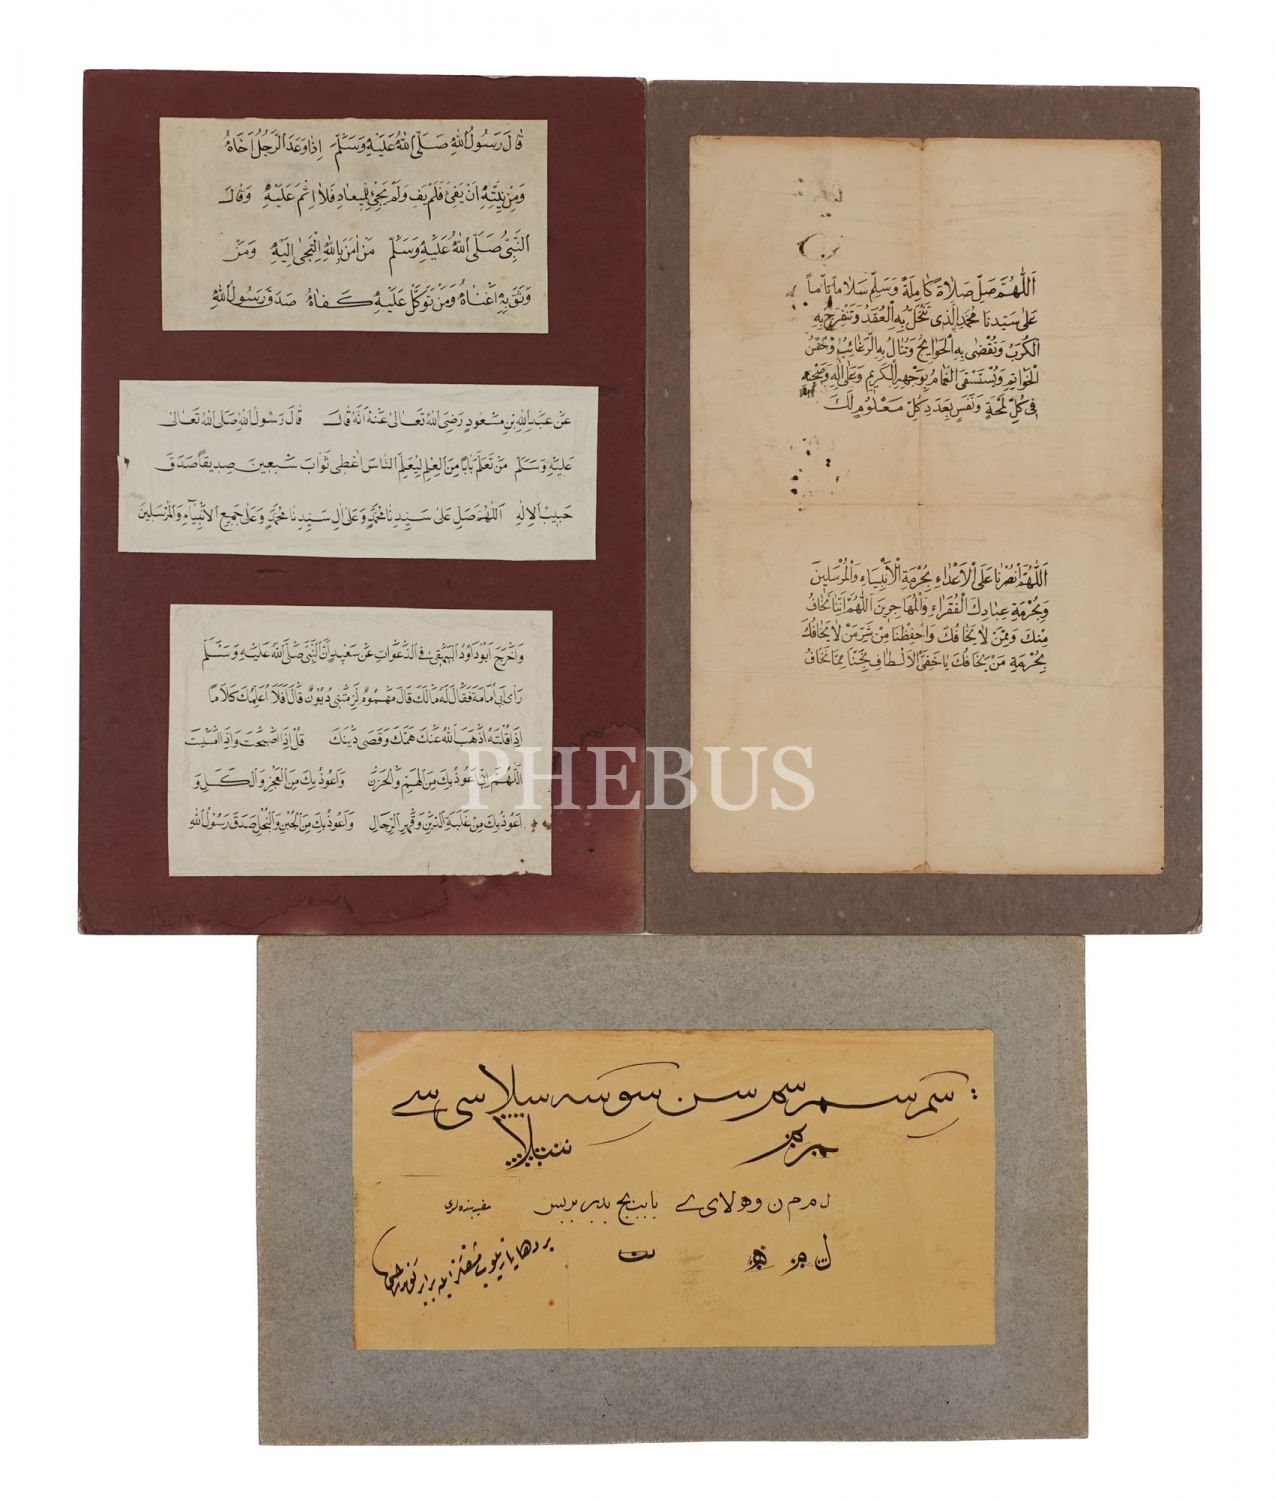 قَالَ رَسُولُ اللهِ صَلَّى اللهُ عَلَيْهِ وَسَلَّمَ اِذَا وَعَدَ الرَّجُلُ اَخَاهُ
وَمِنْ نِيَّتِهِ اَنْ يَفِيَ فَلَمْ يَفِ وَلَمْ يَجِئْ لِلْمِيعَادِ فَلَا اِثْمَ عَلَيْهِ وَقَالَ
النَّبِيُّ صَلَّى اللهُ عَلَيْهِ وَسَلَّمَ مَنْ اٰمَنَ بِاللهِ الْتَجٰى اِلَيْهِ وَمَنْ
وَثِقَ بِهِ اَغْنَاهُ وَمَنْ تَوَكَّلَ عَلَيْهِ كَفَاهُ صَدَقَ رَسُولُ اللهِ
عَنْ عَبْدِ اللهِ بْنِ مَسْعُودٍ رَضِيَ اللهُ تَعَالٰى عَنْهُ اَنَّهُ قَالَ قَالَ رَسُولُ اللهِ صَلَّى اللهُ تَعَالٰى
عَلَيْهِ وَسَلَّمَ مَنْ تَعَلَّمَ بَابًا مِنَ الْعِلْمِ لِيُعَلِّمَ النَّاسَ اُعْطِيَ ثَوَابَ سَبْعِينَ صِدِّيقًا صَدَقَ
حَبِيبُ الْاِلٰهِ اَللّٰهُمَّ صَلِّ عَلٰى سَيِّدِنَا مُحَمَّدٍ وَعَلٰى اٰلِ سَيِّدِنَا مُحَمَّدٍ وَعَلٰى جَمِيعِ الْاَنْبِيَاءِ وَالْمُرْسَلِينَ
وَاَخْرَجَ اَبُو دَاوُدَ الْبَيْهَقِيُّ فِي الدَّعَوَاتِ عَنْ سَعِيدٍ اَنَّ النَّبِيَّ صَلَّى اللهُ عَلَيْهِ وَسَلَّمَ
رَاٰى اَبِي اُمَامَةَ فَقَالَ لَهُ مَالَكَ قَالَ هُمُومٌ لَزِمَتْنِي دُيُونٌ قَالَ اَفَلَا اُعَلِّمُكَ كَلَامًا
اِذَا قُلْتَهُ اَذْهَبَ اللهُ عَنْكَ هَمَّكَ وَقَضٰى دَيْنَكَ قُلْ اِذَا اَصْبَحْتَ وَاِذَا اَمْسَيْتَ
اَللّٰهُمَّ اِنِّي اَعُوذُ بِكَ مِنَ الْهَمِّ وَالْحَزَنِ وَاَعُوذُ بِكَ مِنَ الْعَجْزِ وَالْكَسَلِ وَ
اَعُوذُ بِكَ مِنْ غَلَبَةِ الدَّيْنِ وَقَهْرِ الرِّجَالِ وَاَعُوذُ بِكَ مِنَ الْجُبْنِ وَالْبُخْلِ صَدَقَ رَسُولُ اللهِ
اَللّٰهُمَّ صَلِّ صَلَاةً كَامِلَةً وَسَلِّمْ سَلَامًا تَامًّا
عَلٰى سَيِّدِنَا مُحَمَّدٍ الَّذِي تَنْحَلُّ بِهِ الْعُقَدُ وَتَنْفَرِجُ بِهِ
الْكُرَبُ وَتُقْضٰى بِهِ الْحَوَائِجُ وَتُنَالُ بِهِ الرَّغَائِبُ وَحُسْنُ
الْخَوَاتِمِ وَيُسْتَسْقَى الْغَمَامُ بِوَجْهِهِ الْكَرِيمِ وَعَلٰى اٰلِهِ وَصَحْبِهِ
فِي كُلِّ لَمْحَةٍ وَنَفَسٍ بِعَدَدِ كُلِّ مَعْلُومٍ لَكَ
اَللّٰهُمَّ انْصُرْنَا عَلَى الْاَعْدَاءِ بِحُرْمَةِ الْاَنْبِيَاءِ وَالْمُرْسَلِينَ
وَبِحُرْمَةِ عِبَادِكَ الْفُقَرَاءِ وَالْمُهَاجِرِينَ اَللّٰهُمَّ اِنَّنَا نَخَافُ
مِنْكَ وَمِمَّنْ لَا يَخَافُكَ وَاحْفَظْنَا مِنْ شَرِّ مَنْ لَا يَخَافُكَ
بِحُرْمَةِ مَنْ يَخَافُكَ يَا خَفِيَّ الْاَلْطَافِ نَجِّنَا مِمَّا نَخَافُ
PHEBUS
سن سو سه سلا سى سے
ل م ر م ن و هو لا ى ے